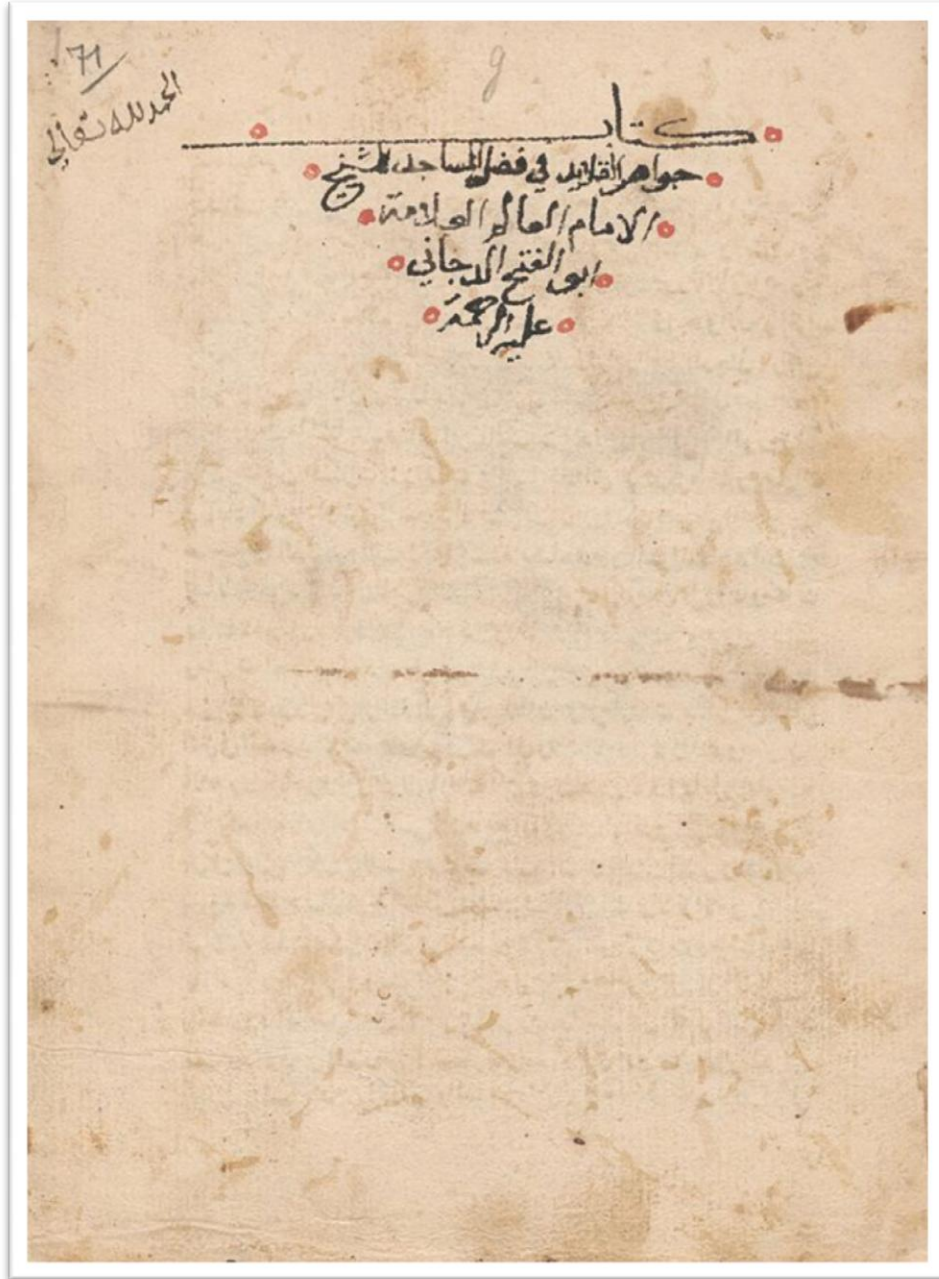 71
9
الحمد لله تعالى
كتاب
جواهر القلايد في فضل المساجد للشيخ
الامام العالم العلامة
ابو الفتح الدجاني
عليه الرحمة